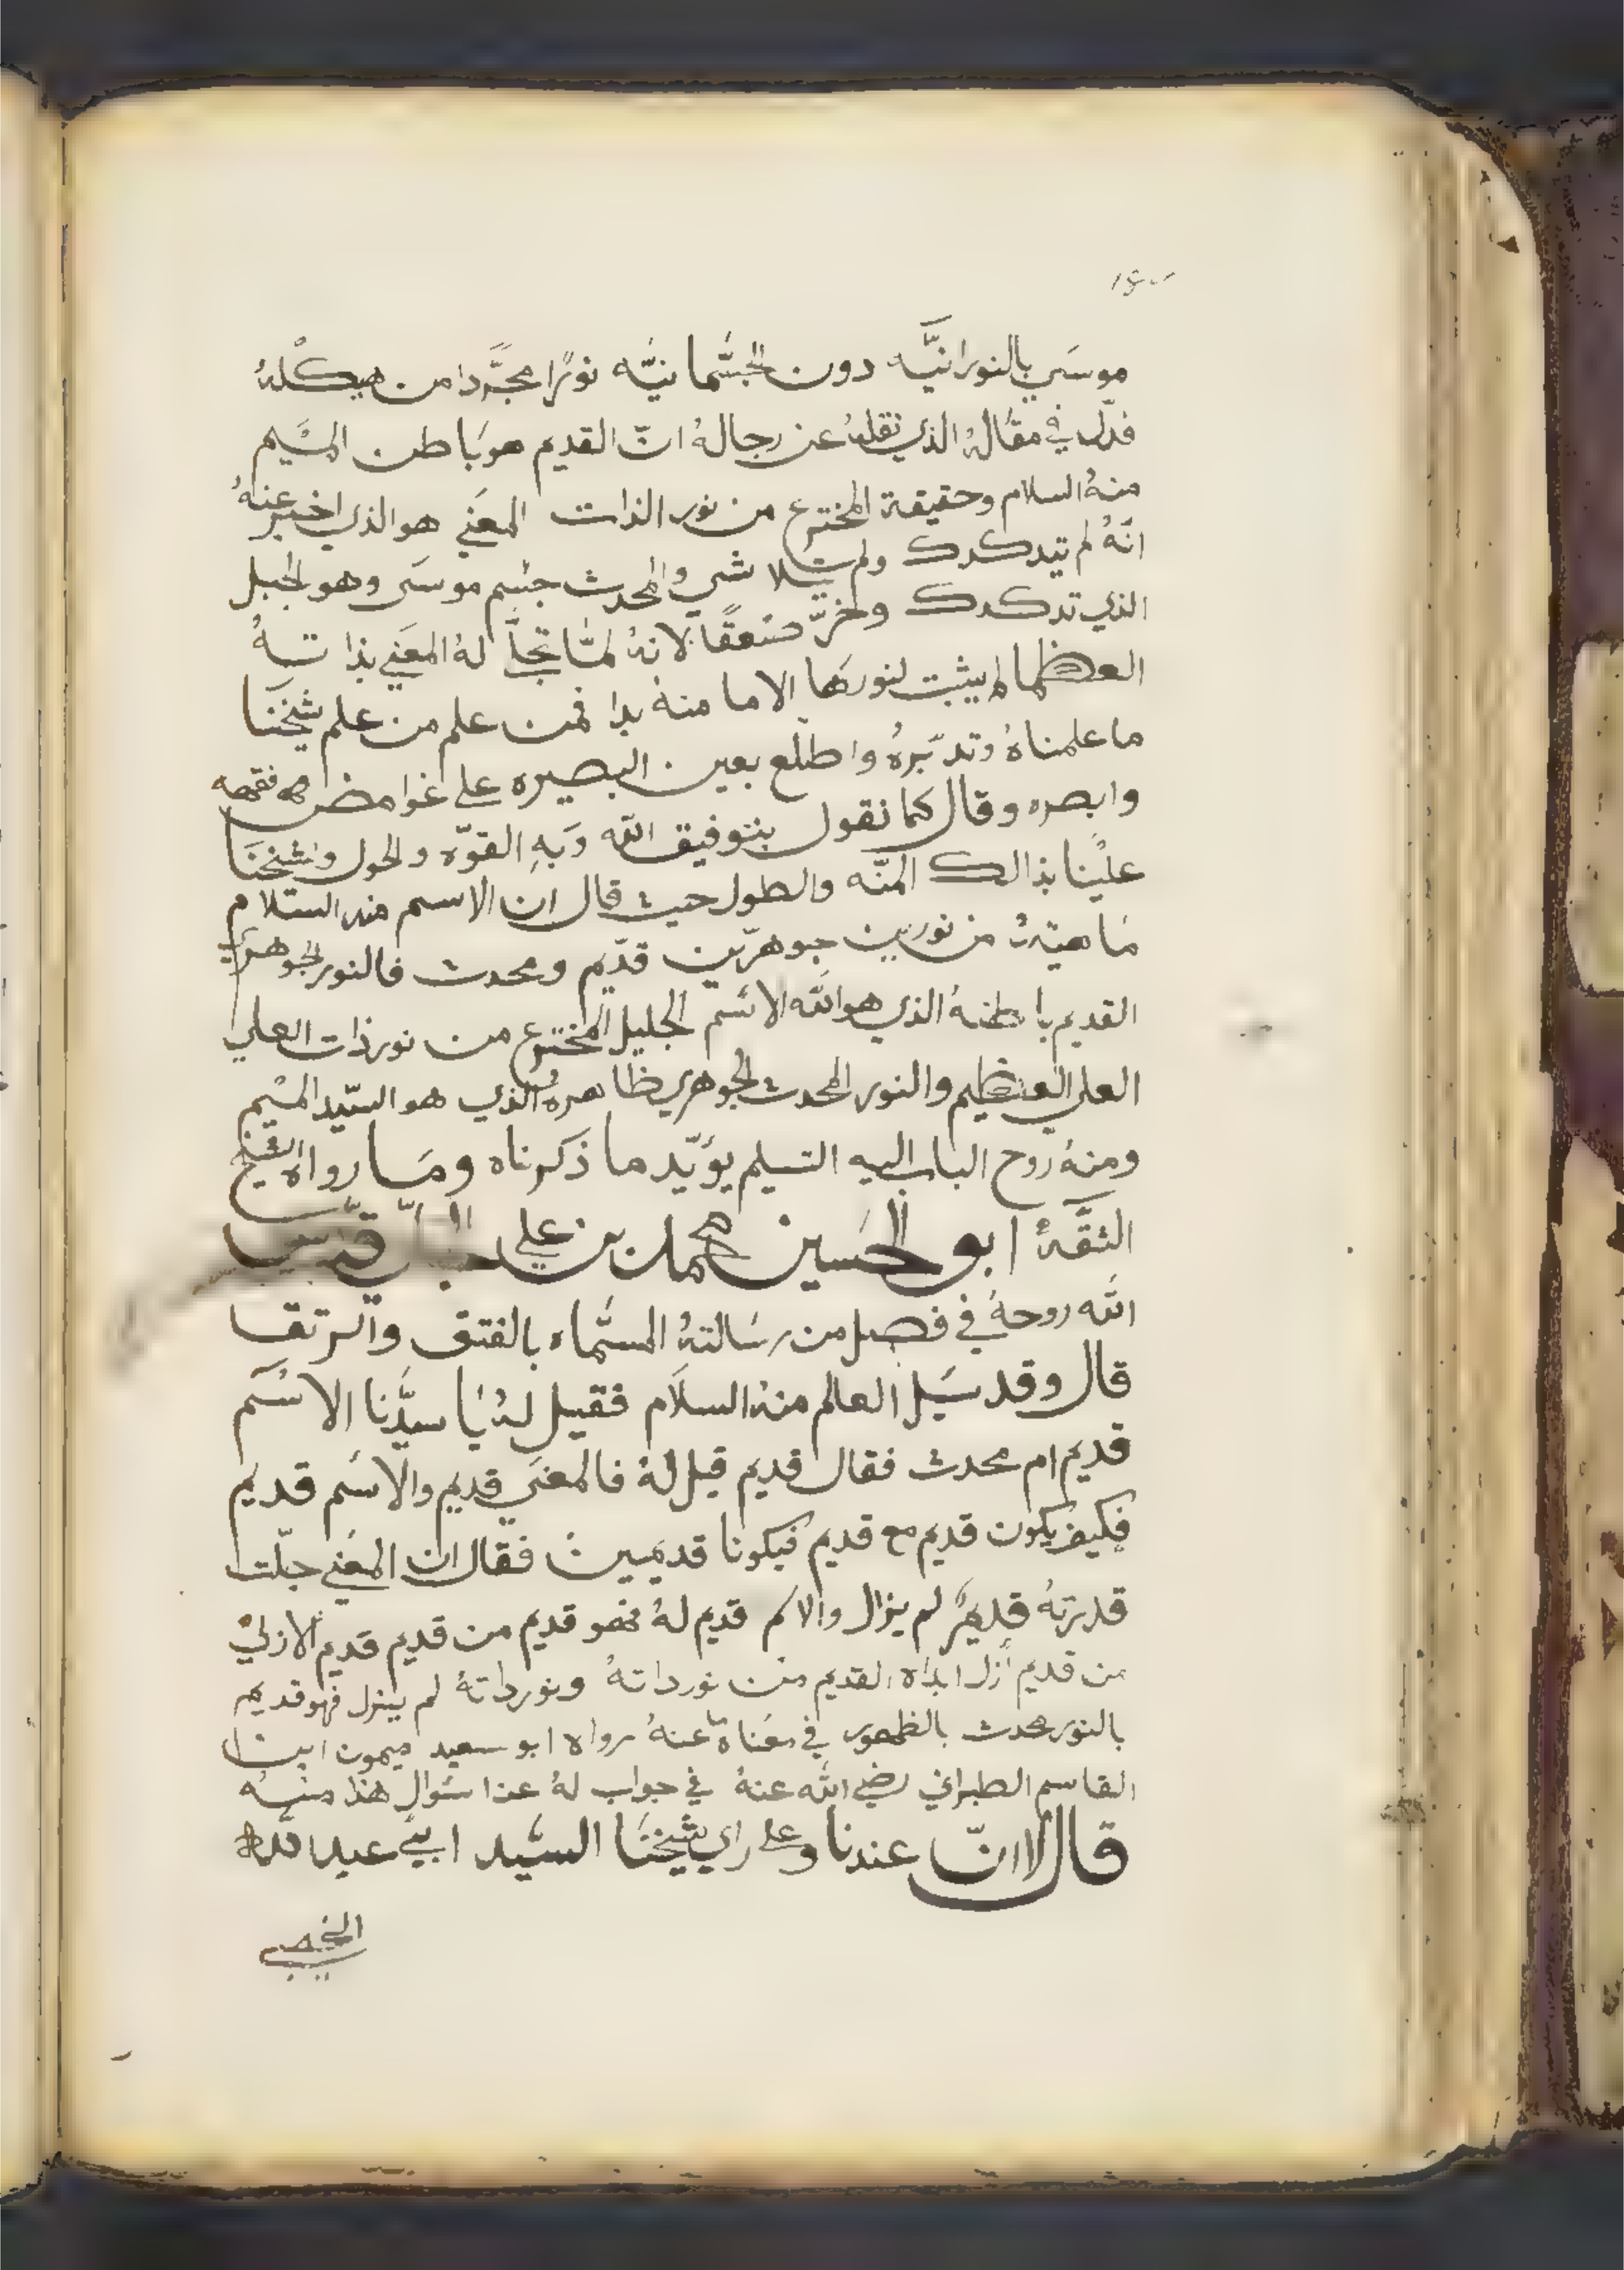 موسَي بالنورانيَّه دون الجسْمانيّه نورًا مجرَّدا من هيكْلهُ
فدّل في مقالهُ الذي نقلهُ عن رجالهُ انّ القديم هو باطن الميْم
منهُ السلام وحقيقة المخترع من نور الذات المعَني هو الذي اخبر عنهُ
انّهُ لم تيدكدك ولم يتلاشي والمحدث جسْم موسَى وهو الجبل
الذي تدكدك وخرّ صَعقًا لانهُ لمّا تجلّا لهُ المعَني بذاتهُ
العظما لم يثبت لنورها الا ما منهُ بدا فمن علم من علم شيخنَا
ما علمناهُ وتدبّرهُ واطلع بعين البصيره علي غوامض فقهه
وابصره وقال كما نقول بتوفيق الله وَبهِ القوّه والحول ولشيخنَا
عليْنا بذالك المنّه والطول حيث قال ان الاسم منه السّلام
مَاهيتهُ من نورين جوهرّين قدّيم ومحدث فالنور الجوهري
القديم باطنهُ الذي هو الله الاسْم الجليل المخترع من نور ذات العلي
العلي العظيم والنور المحدث الجوهري ظاهرهُ الذي هو السّيد الميْم
ومنهُ روح الباب اليه التسليم يؤيّد ما ذكرناه ومَا رواه الشيخ
الثقَّهْ ابو الحسَين محمد بن علي الجلّي قدّس
الله روحهُ في فصل من رسَالتهُ المسمّاه بالفتق والرتقا
قال وقد سَيل العالم منهُ السلاَم فقيل لهُ يا سيدَّنا الاسْم
قديم ام محدث فقال قديم قيل لهُ فالمعَني قديم والاسْم قديم
فكيف يكون قديم مع قديم فيكونا قديمين فقال ان المعَني جلّت
قدرتهُ قديم لم يزال والاسم قديم لهُ فهو قديم من قديم قديم الازليْ
من قديم أزل ابداه القديم من نور داتهُ ونور داتهُ لم يزل فهو قديم
بالنور محدث بالظهور في معَناه ما عنهُ رواه ابو سعيد ميمون ابن
القاسم الطبراني رضي الله عنهُ في جواب لهُ عن سَوال هذا منهُ
قال لا انّ عندنا وعلي راي شيخنَا السيّد ابيْ عبد الله
الخصيبي